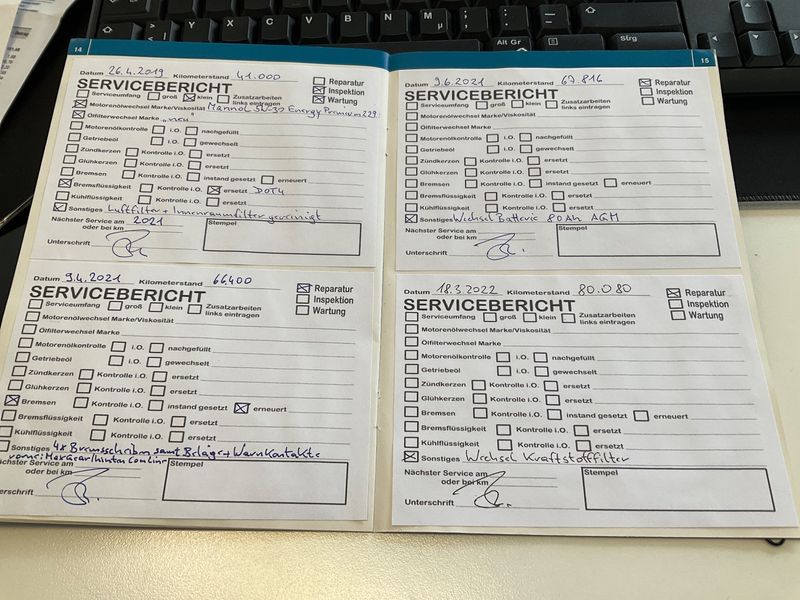 Y X C V B N M µ ; , : .
Alt Gr
Strg
14
Datum 26.4.2019 Kilometerstand 41.000
SERVICEBERICHT
Reparatur
Inspektion
Wartung
Serviceumfang groß klein Zusatzarbeiten links eintragen
Motorenölwechsel Marke/Viskosität Mannol 5W-30 Energy Premium 229.
Ölfilterwechsel Marke "neu"
Motorenölkontrolle i.O. nachgefüllt
Getriebeöl i.O. gewechselt
Zündkerzen Kontrolle i.O. ersetzt
Glühkerzen Kontrolle i.O. ersetzt
Bremsen Kontrolle i.O. instand gesetzt erneuert
Bremsflüssigkeit Kontrolle i.O. ersetzt DOT4
Kühlflüssigkeit Kontrolle i.O. ersetzt
Sonstiges Luftfilter + Innenraumfilter gereinigt
Nächster Service am 2021
oder bei km
Stempel
Unterschrift
Datum 9.4.2021 Kilometerstand 66.400
SERVICEBERICHT
Reparatur
Inspektion
Wartung
Serviceumfang groß klein Zusatzarbeiten links eintragen
Motorenölwechsel Marke/Viskosität
Ölfilterwechsel Marke
Motorenölkontrolle i.O. nachgefüllt
Getriebeöl i.O. gewechselt
Zündkerzen Kontrolle i.O. ersetzt
Glühkerzen Kontrolle i.O. ersetzt
Bremsen Kontrolle i.O. instand gesetzt erneuert
Bremsflüssigkeit Kontrolle i.O. ersetzt
Kühlflüssigkeit Kontrolle i.O. ersetzt
Sonstiges 4x Bremsscheiben samt Beläge + Warnkontakte
chster Service am
oder bei km
Stempel
Unterschrift
15
Datum 9.6.2021 Kilometerstand 67.816
SERVICEBERICHT
Reparatur
Inspektion
Wartung
Serviceumfang groß klein Zusatzarbeiten links eintragen
Motorenölwechsel Marke/Viskosität
Ölfilterwechsel Marke
Motorenölkontrolle i.O. nachgefüllt
Getriebeöl i.O. gewechselt
Zündkerzen Kontrolle i.O. ersetzt
Glühkerzen Kontrolle i.O. ersetzt
Bremsen Kontrolle i.O. instand gesetzt erneuert
Bremsflüssigkeit Kontrolle i.O. ersetzt
Kühlflüssigkeit Kontrolle i.O. ersetzt
Sonstiges Wechsel Batterie 80Ah AGM
Nächster Service am
oder bei km
Stempel
Unterschrift
Datum 18.3.2022 Kilometerstand 80.080
SERVICEBERICHT
Reparatur
Inspektion
Wartung
Serviceumfang groß klein Zusatzarbeiten links eintragen
Motorenölwechsel Marke/Viskosität
Ölfilterwechsel Marke
Motorenölkontrolle i.O. nachgefüllt
Getriebeöl i.O. gewechselt
Zündkerzen Kontrolle i.O. ersetzt
Glühkerzen Kontrolle i.O. ersetzt
Bremsen Kontrolle i.O. instand gesetzt erneuert
Bremsflüssigkeit Kontrolle i.O. ersetzt
Kühlflüssigkeit Kontrolle i.O. ersetzt
Sonstiges Wechsel Kraftstofffilter
Nächster Service am
oder bei km
Stempel
Unterschrift